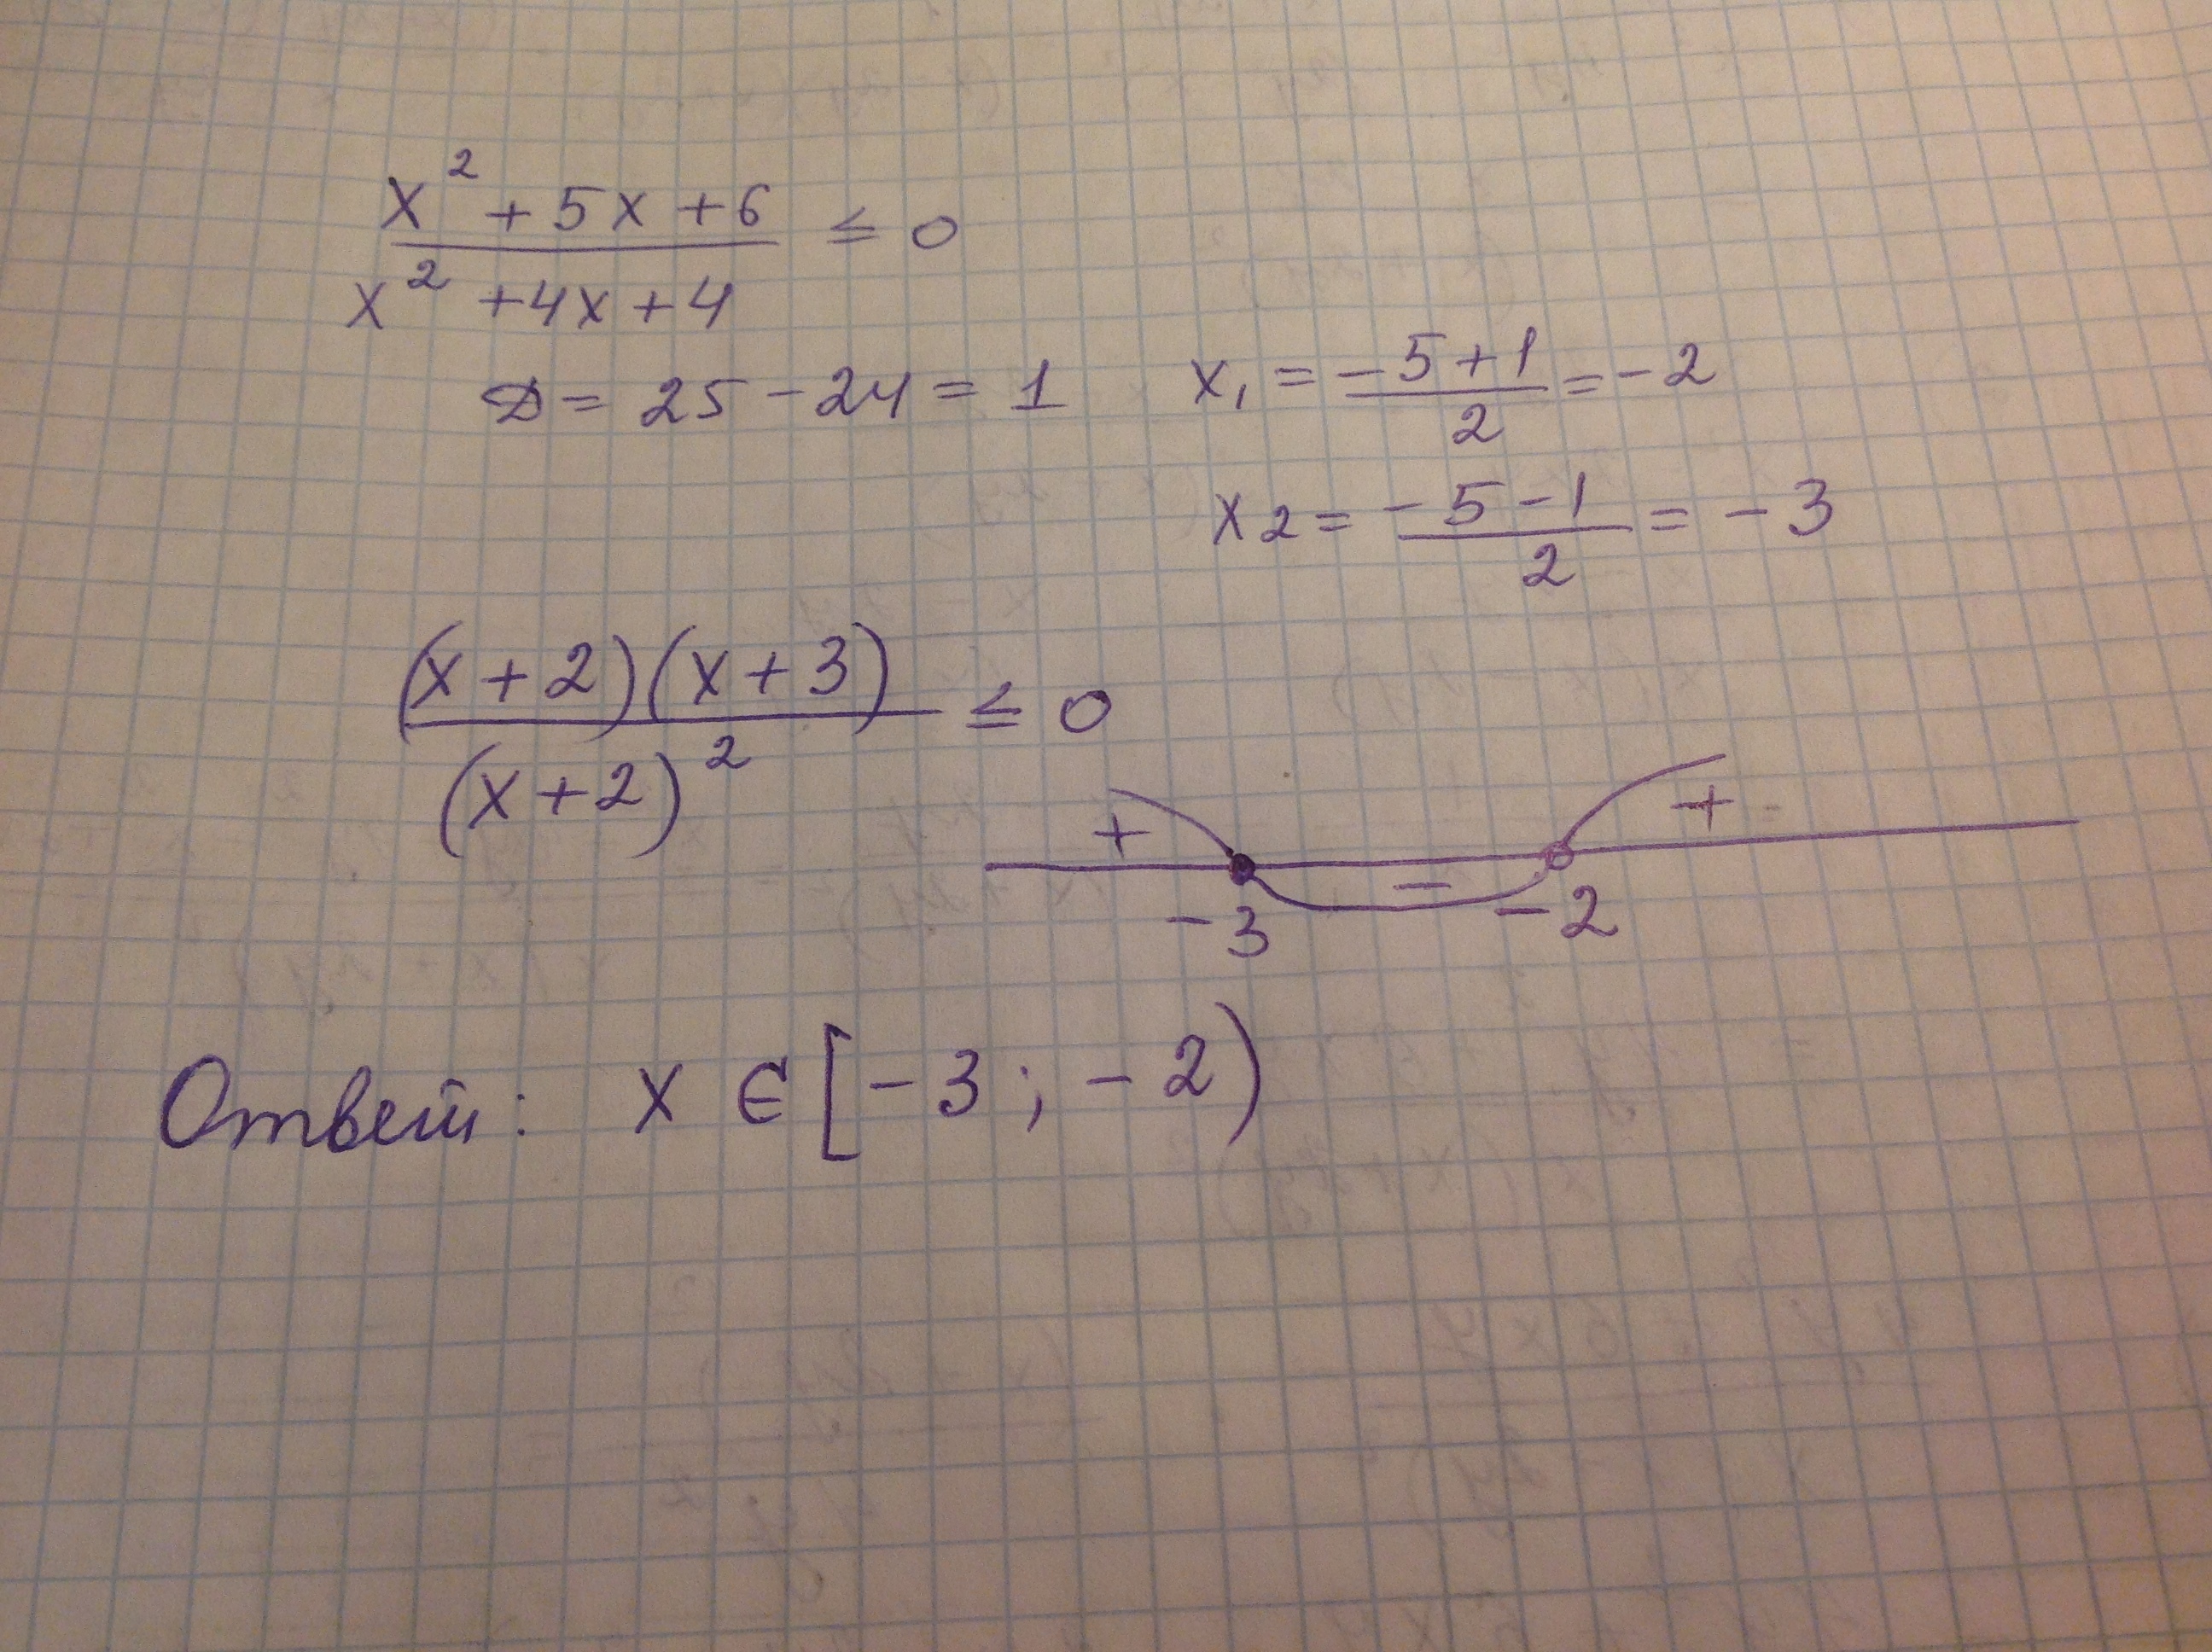 x² + 5x + 6
―――――― ≤ 0
x² + 4x + 4
D = 25 - 24 = 1   x₁ = (-5+1)/2 = -2
x₂ = (-5-1)/2 = -3
(x + 2)(x + 3)
―――――― ≤ 0
(x + 2)²
+ − +
-3 -2
Ответ: x ∈ [-3; -2)